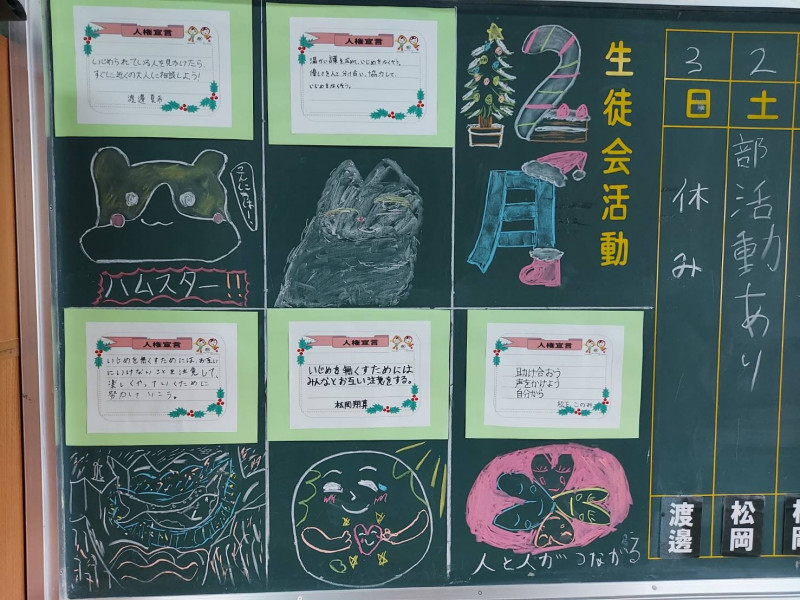 人権宣言
いじめられている人を見かけたら、
すぐに近くの大人に相談しよう!
人権宣言
優しく支え合い、協力して、
いじめをなくそう。
2
月
生徒会活動
3
2
日
土
休み
部活動あり
渡邊
松岡
こんにちはー、
ハムスター!!
人権宣言
いじめを無くすためには、お互い
にいけないことを注意して、
努力していこう。
人権宣言
いじめを無くすためには
みんなとお互い注意をする。
人権宣言
助け合おう
声をかけよう
自分から
人と人がつながる